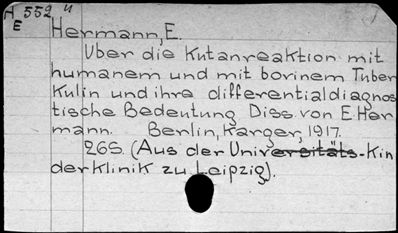 A 552 u
E
Hermann, E.
Uber die Kutanreaktion mit
humanem und mit bovinem Tuber
Kulin und ihre differentialdiagnos
tische Bedeutung Diss. von E. Her
mann. Berlin, Karger, 1917.
26S. (Aus der Universitäts-Kin
derklinik zu Leipzig).